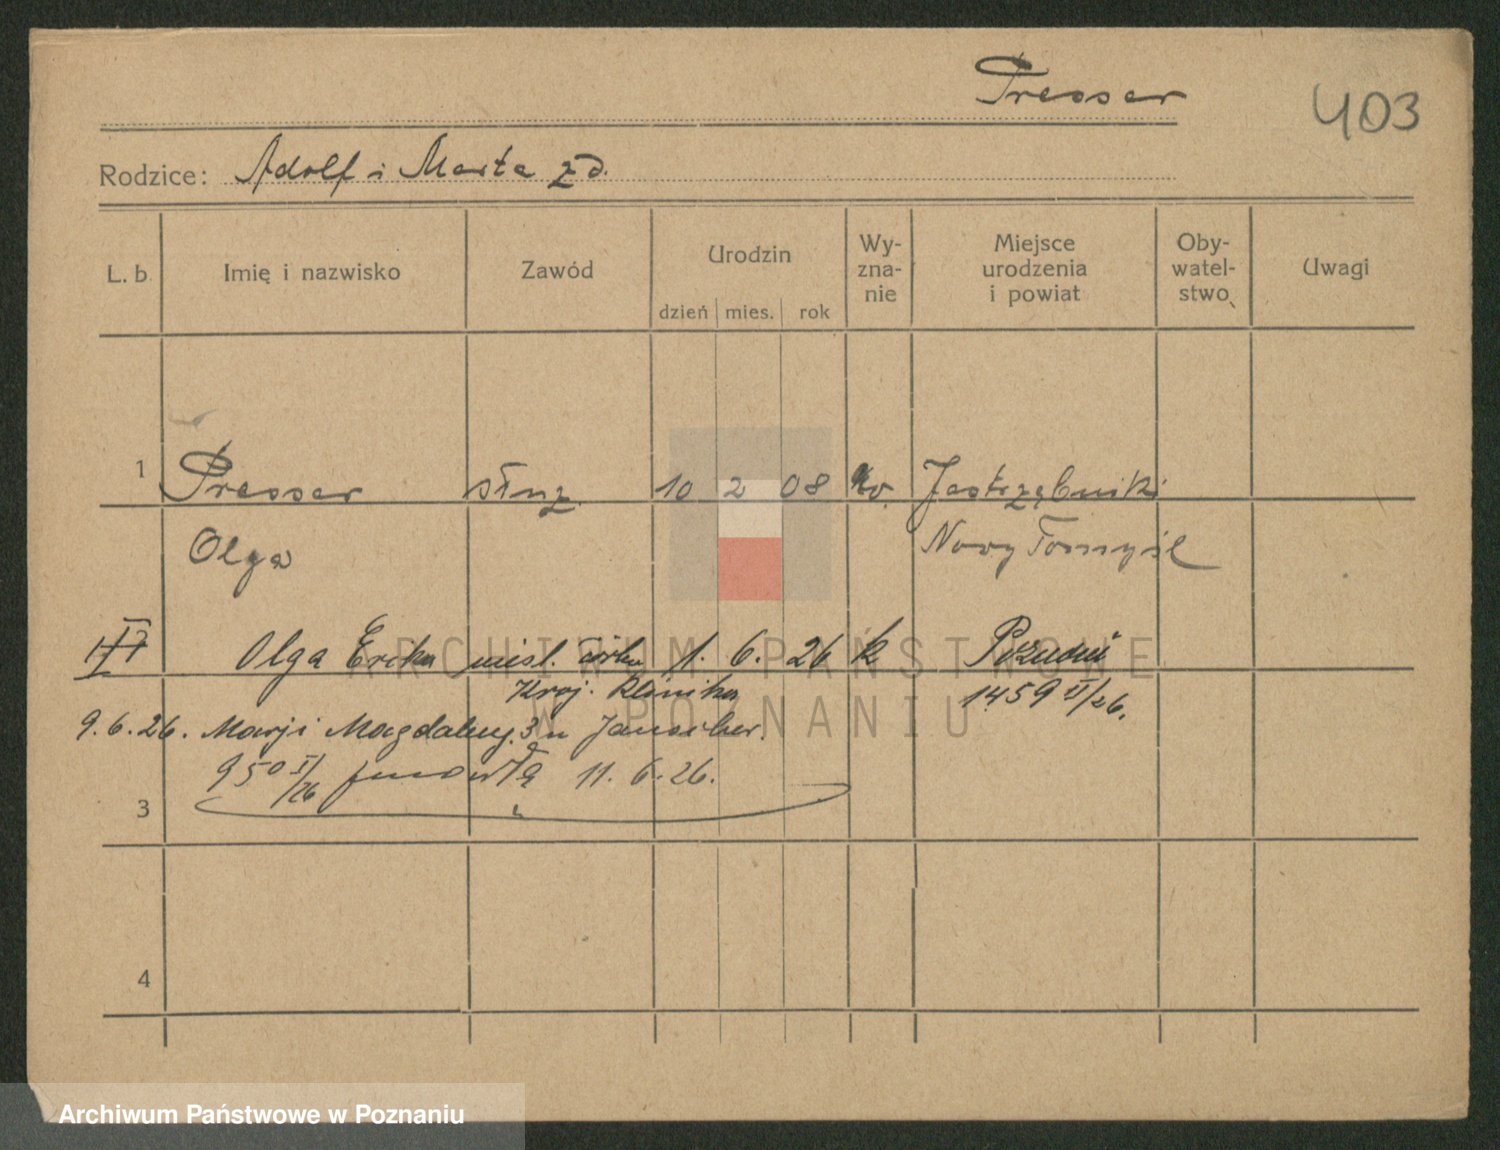 Presser
403
Rodzice: Adolf i Marta z d.
L. b. Imię i nazwisko Zawód Urodzin dzień mies. rok Wy-zna-nie Miejsce urodzenia i powiat Oby-watel-stwo Uwagi
1 Presser służ. 10 2 08 Jastrzębniki
Olga Nowy Tomyśl
Olga Erika nieśl. córka 1. 6. 26 k Poznań
Kraj. Klinika 1459 II/26.
9.6.26. Marji Magdaleny 3 u
950 I/26 11. 6. 26.
3
4
ARCHIWUM PAŃSTWOWE
W POZNANIU
Archiwum Państwowe w Poznaniu